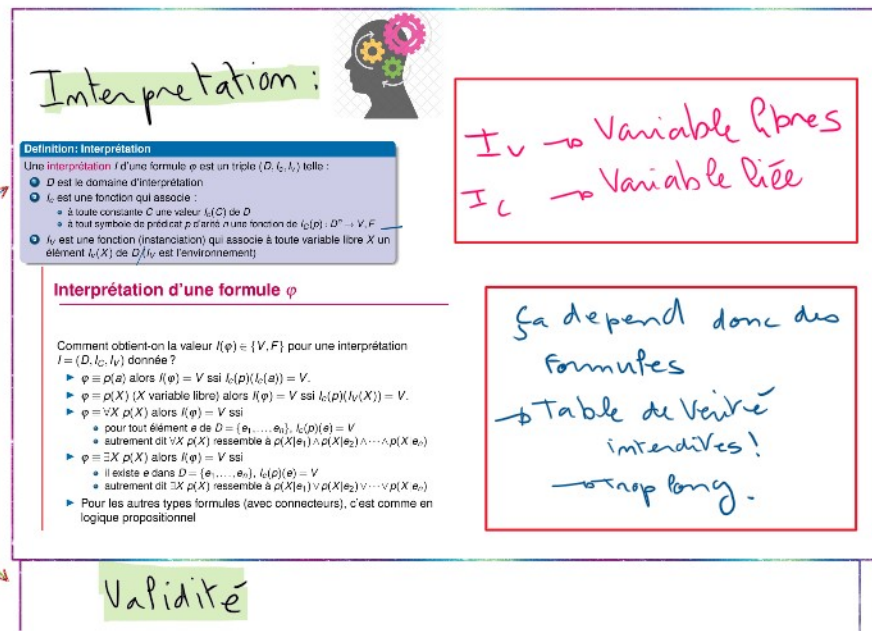 Interpretation :
Definition: Interprétation
Une interprétation I d'une formule φ est un triple (D, I_c, I_v) telle :
1 D est le domaine d'interprétation
2 I_c est une fonction qui associe :
• à toute constante C une valeur I_c(C) de D
• à tout symbole de prédicat p d'arité n une fonction de I_C(p) : D^n → V, F
3 I_V est une fonction (instanciation) qui associe à toute variable libre X un
élément I_v(X) de D (I_V est l'environnement)
I_v → Variable libres
I_c → Variable liée
Interprétation d'une formule φ
Comment obtient-on la valeur I(φ) ∈ {V, F} pour une interprétation
I = (D, I_C, I_V) donnée ?
► φ ≡ p(a) alors I(φ) = V ssi I_c(p)(I_c(a)) = V.
► φ ≡ p(X) (X variable libre) alors I(φ) = V ssi I_c(p)(I_V(X)) = V.
► φ ≡ ∀X p(X) alors I(φ) = V ssi
• pour tout élément e de D = {e₁, ..., eₙ}, I_c(p)(e) = V
• autrement dit ∀X p(X) ressemble à p(X|e₁) ∧ p(X|e₂) ∧ ··· ∧ p(X eₙ)
► φ ≡ ∃X p(X) alors I(φ) = V ssi
• il existe e dans D = {e₁, ..., eₙ}, I_c(p)(e) = V
• autrement dit ∃X p(X) ressemble à p(X|e₁) ∨ p(X|e₂) ∨ ··· ∨ p(X eₙ)
► Pour les autres types formules (avec connecteurs), c'est comme en
logique propositionnel
Ça depend donc des
formules
→ Table de Verité
interdites !
→ trop long.
Validité